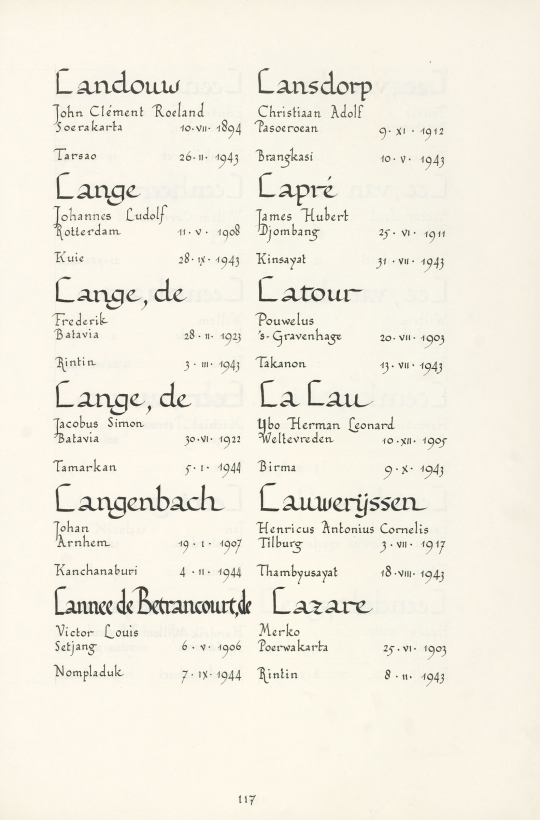 Landouw
John Clément Roeland
Soerakarta 10·VII· 1894
Tarsao 26·II· 1943
Lange
Johannes Ludolf
Rotterdam 11·V· 1908
Kuie 28·IX· 1943
Lange, de
Frederik
Batavia 28·II· 1923
Rintin 3·III· 1943
Lange, de
Jacobus Simon
Batavia 30·VI· 1922
Tamarkan 5·I· 1944
Langenbach
Johan
Arnhem 19·I· 1907
Kanchanaburi 4·II· 1944
Lannee de Betrancourt, de
Victor Louis
Setjang 6·V· 1906
Nompladuk 7·IX· 1944
Lansdorp
Christiaan Adolf
Pasoeroean 9·XI· 1912
Brangkasi 10·V· 1943
Lapré
James Hubert
Djombang 25·VI· 1911
Kinsayat 31·VII· 1943
Latour
Pouwelus
's-Gravenhage 20·VII· 1903
Takanon 13·VII· 1943
La Lau
Ybo Herman Leonard
Weltevreden 10·XII· 1905
Birma 9·X· 1943
Lauwerijssen
Henricus Antonius Cornelis
Tilburg 3·VII· 1917
Thambyusayat 18·VIII· 1943
Lazare
Merko
Poerwakarta 25·VI· 1903
Rintin 8·II· 1943
117